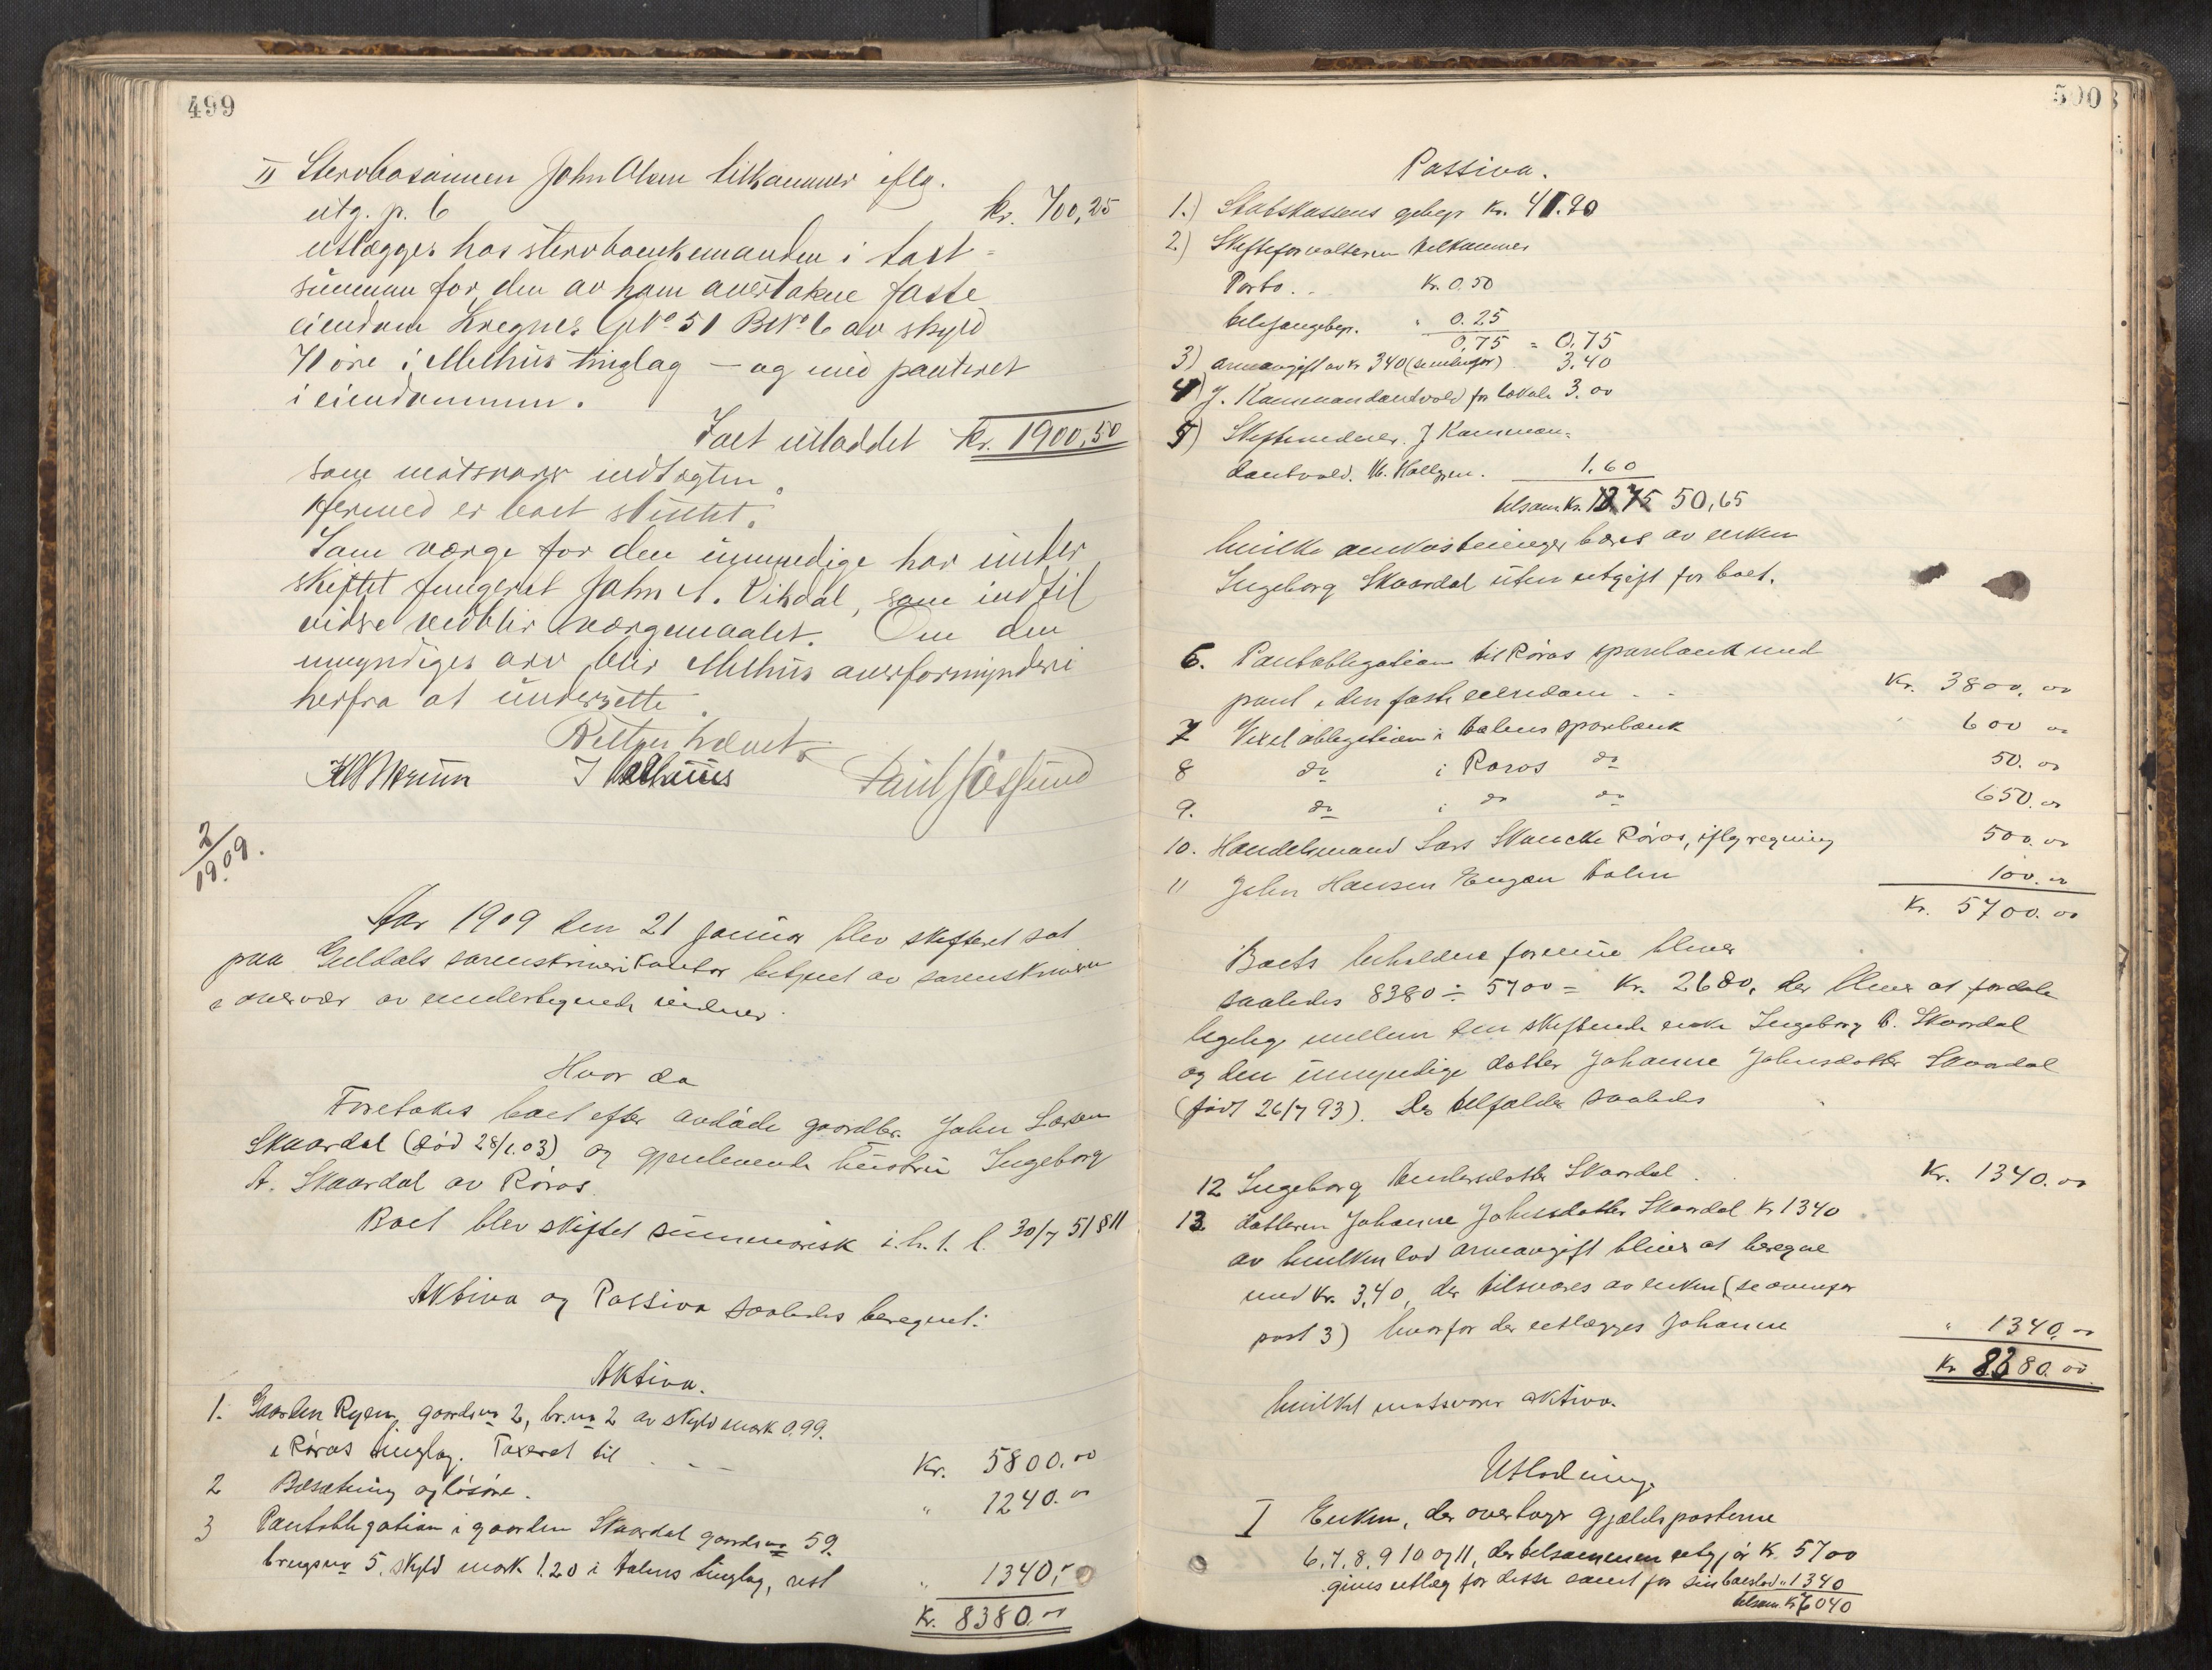 499
II Stervbosønnen John Olsen tilkommer iflg.
utg. p. 6 kr. 700,25
utlægges hos stervboenkemanden i tast-
summen for den av ham overtakne faste
eiendom Kregnes GNo 51 BNo 6 av skyld
71 øre i Melhus tinglag – og med panteret
i eiendommen.
I alt utloddet kr. 1900,50
som motsvarer indtægten.
Hermed er boet sluttet.
Som værge for den umyndige har under
skiftet fungeret John A. Vikdal, som indtil
videre vedblir værgemaalet. Om den
umyndiges arv blir Melhus overformynderi
herfra at underrette.
Retten hævet
Paul Fossund
2/1909.
Aar 1909 den 21 januar blev skifteret sat
paa Guldals sorenskriverikontor betjent av sorenskriveren
i overvær av undertegnede vidner.
Hvor da
Foretokes boet efter avdøde gaardbr. John Larsen
Skaardal (død 28/1.03) og gjenlevende hustru Ingeborg
A. Skaardal av Røros.
Boet blev skiftet summarisk i.h.t. l. 30/7 51 § 11
Aktiva og Passiva saaledes beregnet:
Aktiva.
1. Gaarden Ryen, gaardsno 2, br.no 2 av skyld mark 0.99.
i Røros tinglag. Taxeret til . – – Kr. 5800.00
2 Besætning og løsøre. " 1240.00
3 Pantobligation i gaarden Skaardal gaardsno 59.
brugsno 5. skyld mark 1.20 i Aalens tinglag, rest " 1340,-
Kr. 8380.00
500
Passiva.
1.) Statskassens gebyr Kr. 41.90
2.) Skifteforvalteren tilkommer
Porto . . Kr. 0.50
telefongebyr. " 0.25
0,75 = 0.75
3) arveavgift av kr 340 (se nedenfor) 3.40
4) J. Kommandantvold for lokale 3.00
5) Skiftevidner. J Komman-
dantvold. 1.60
tilsam. Kr. 50,65
hvilke omkostninger bæres av enken
Ingeborg Skaardal uten utgift for boet.
6. Pantobligation til Røros sparebank med
pant i den faste eiendom - - Kr. 3800.00
7 Vexelobligation i Aalens sparebank " 600 00
8 do i Røros do 50.00
9. do i do do 650.00
10. Handelsmand Lars Skancke Røros, iflg regning 500.00
11 John Hansen Engan Aalen 100.00
Kr. 5700.00
Boets beholdne formue bliver
saaledes 8380 ÷ 5700 = Kr. 2680, der bliver at fordele
ligelig mellem den skiftende enke Ingeborg A. Skaardal
og den umyndige datter Johanne Johnsdatter Skaardal
(født 26/7 93). Der tilfalder saaledes
12 Ingeborg Andersdatter Skaardal . Kr. 1340.00
13. datteren Johanne Johnsdatter Skaardal Kr 1340
av hvilken lod arveavgift bliver at beregne
med kr. 3,40, der tilsvares av enken (se ovenfor
post 3) hvorfor der utlægges Johanne " 1340.00
Kr 8380.00
hvilket motsvarer aktiva.
Utlodning.
I Enken, der overtager gjældsposterne
6. 7. 8. 9 10 og 11, der tilsammen utgjør Kr. 5700
gives utlæg for disse samt for sin boeslod " 1340
tilsam. Kr 7040